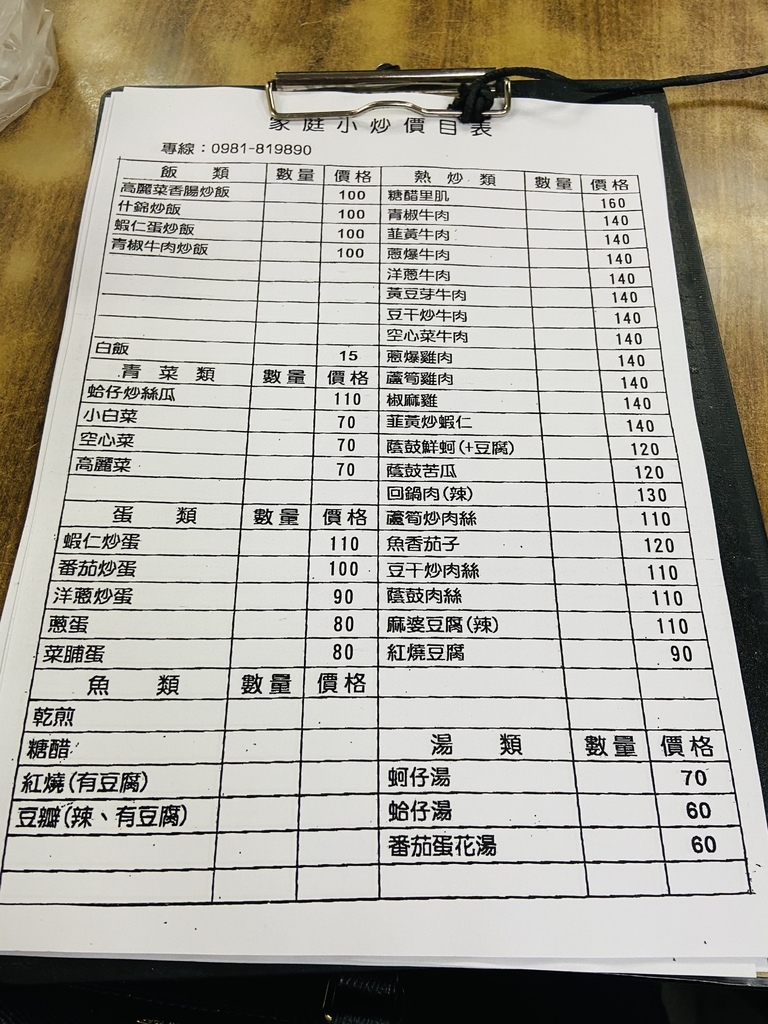 家庭小炒價目表
專線：0981-819890
飯類 數量 價格
高麗菜香腸炒飯 100
什錦炒飯 100
蝦仁蛋炒飯 100
青椒牛肉炒飯 100
白飯 15
青菜類 數量 價格
蛤仔炒絲瓜 110
小白菜 70
空心菜 70
高麗菜 70
蛋類 數量 價格
蝦仁炒蛋 110
番茄炒蛋 100
洋蔥炒蛋 90
蔥蛋 80
菜脯蛋 80
魚類 數量 價格
乾煎
糖醋
紅燒(有豆腐)
豆瓣(辣、有豆腐)
熱炒類 數量 價格
糖醋里肌 160
青椒牛肉 140
韮黃牛肉 140
蔥爆牛肉 140
洋蔥牛肉 140
黃豆芽牛肉 140
豆干炒牛肉 140
空心菜牛肉 140
蔥爆雞肉 140
蘆筍雞肉 140
椒麻雞 140
韮黃炒蝦仁 140
蔭鼓鮮蚵(+豆腐) 120
蔭鼓苦瓜 120
回鍋肉(辣) 130
蘆筍炒肉絲 110
魚香茄子 120
豆干炒肉絲 110
蔭鼓肉絲 110
麻婆豆腐(辣) 110
紅燒豆腐 90
湯類 數量 價格
蚵仔湯 70
蛤仔湯 60
番茄蛋花湯 60